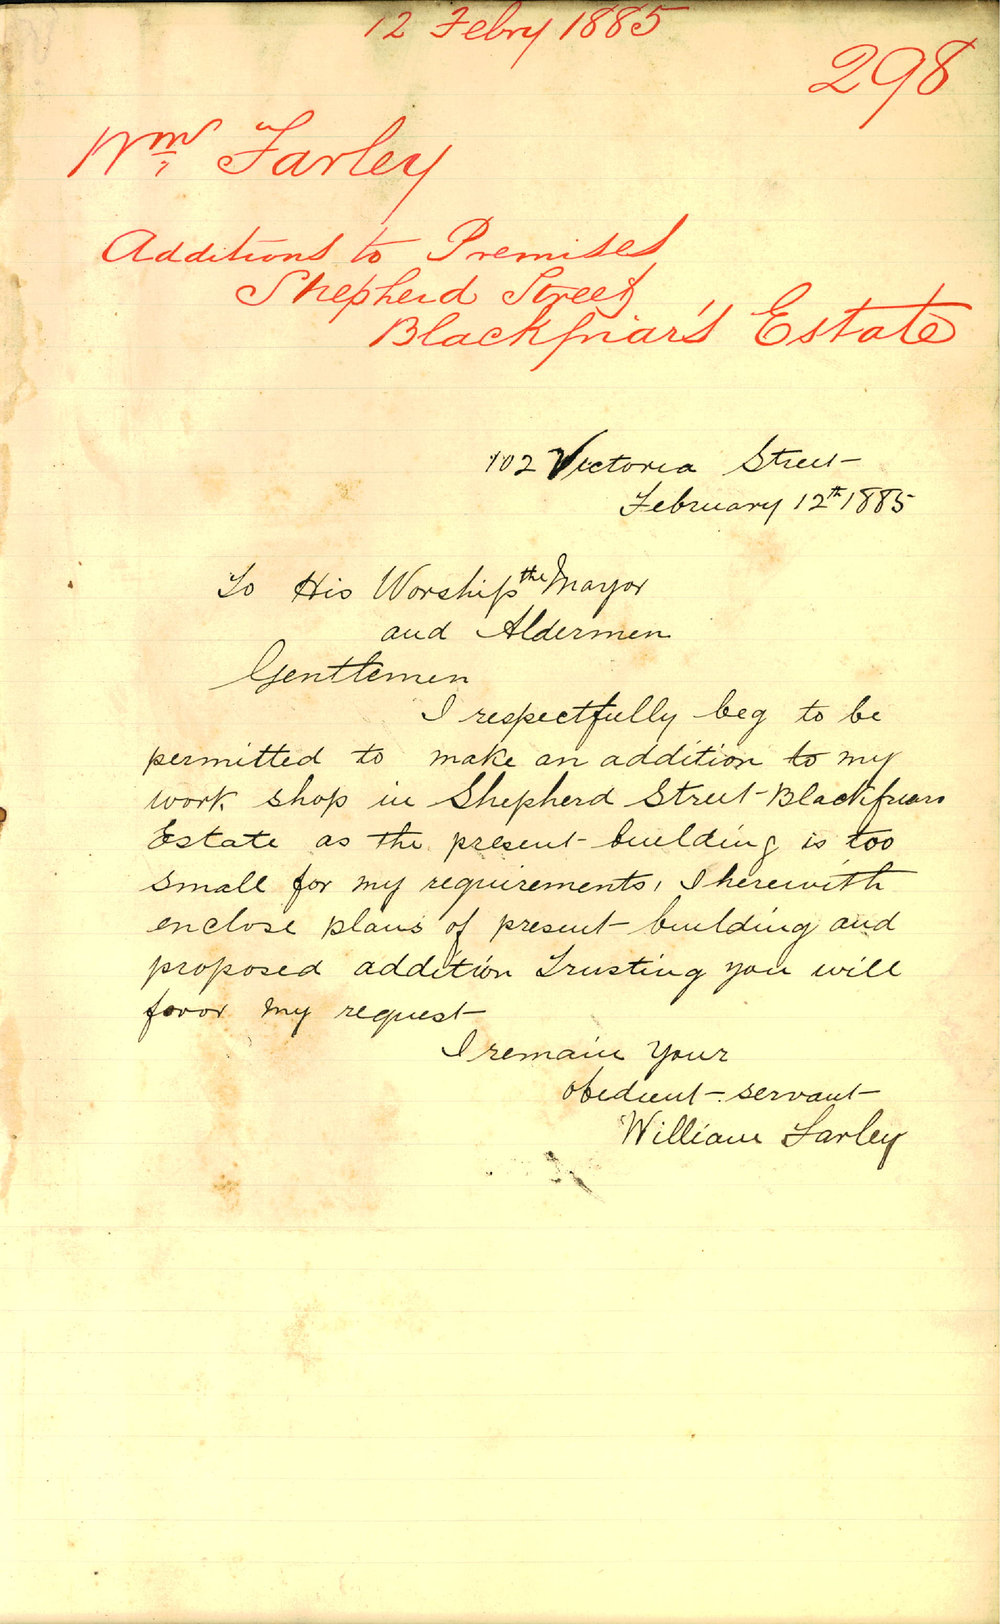 12 Febry 1885
298
Wm Farley
Additions to Premises
Shepherd Street
Blackfriar's Estate
102 Victoria Street
February 12th 1885
To His Worship the Mayor
and Aldermen
Gentlemen
I respectfully beg to be
permitted to make an addition to my
work shop in Shepherd Street Blackfriars
Estate as the present building is too
small for my requirements, I herewith
enclose plans of present building and
proposed addition Trusting you will
favor my request
I remain your
obedient servant
William Farley